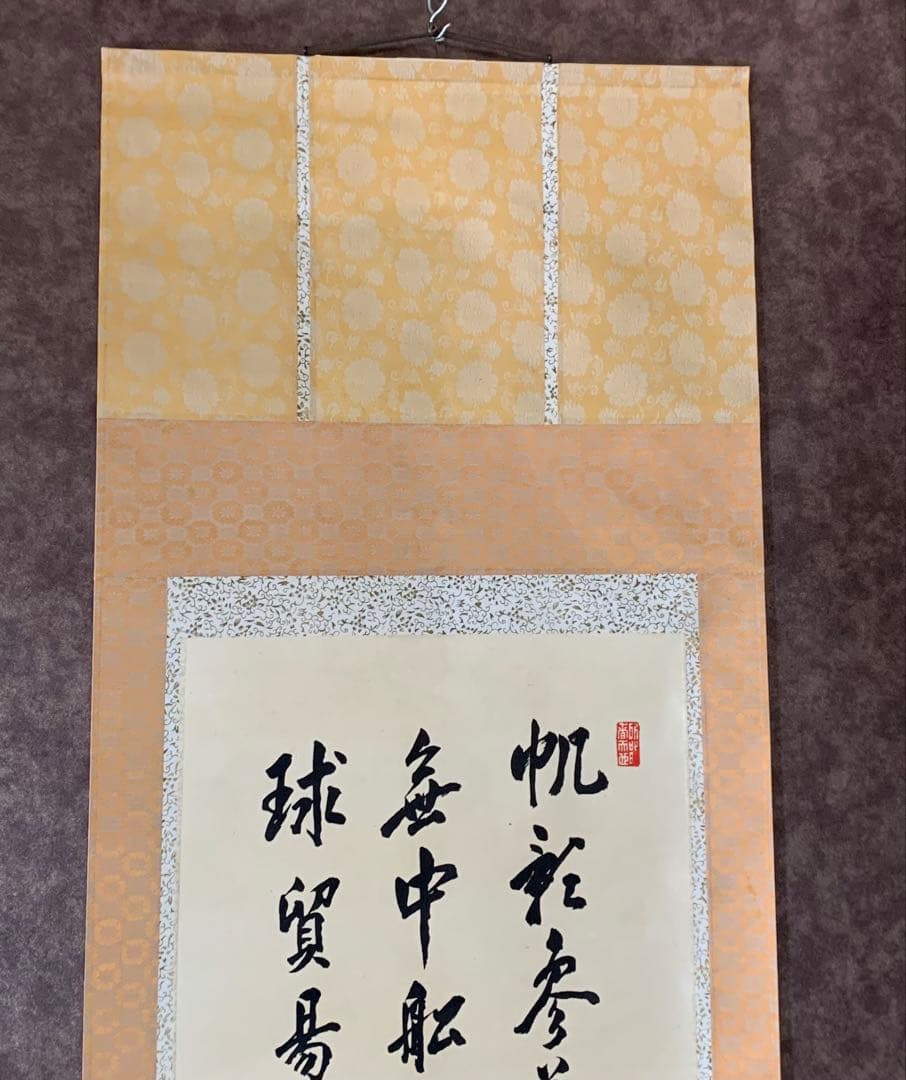 帆影参
無中船
球貿易